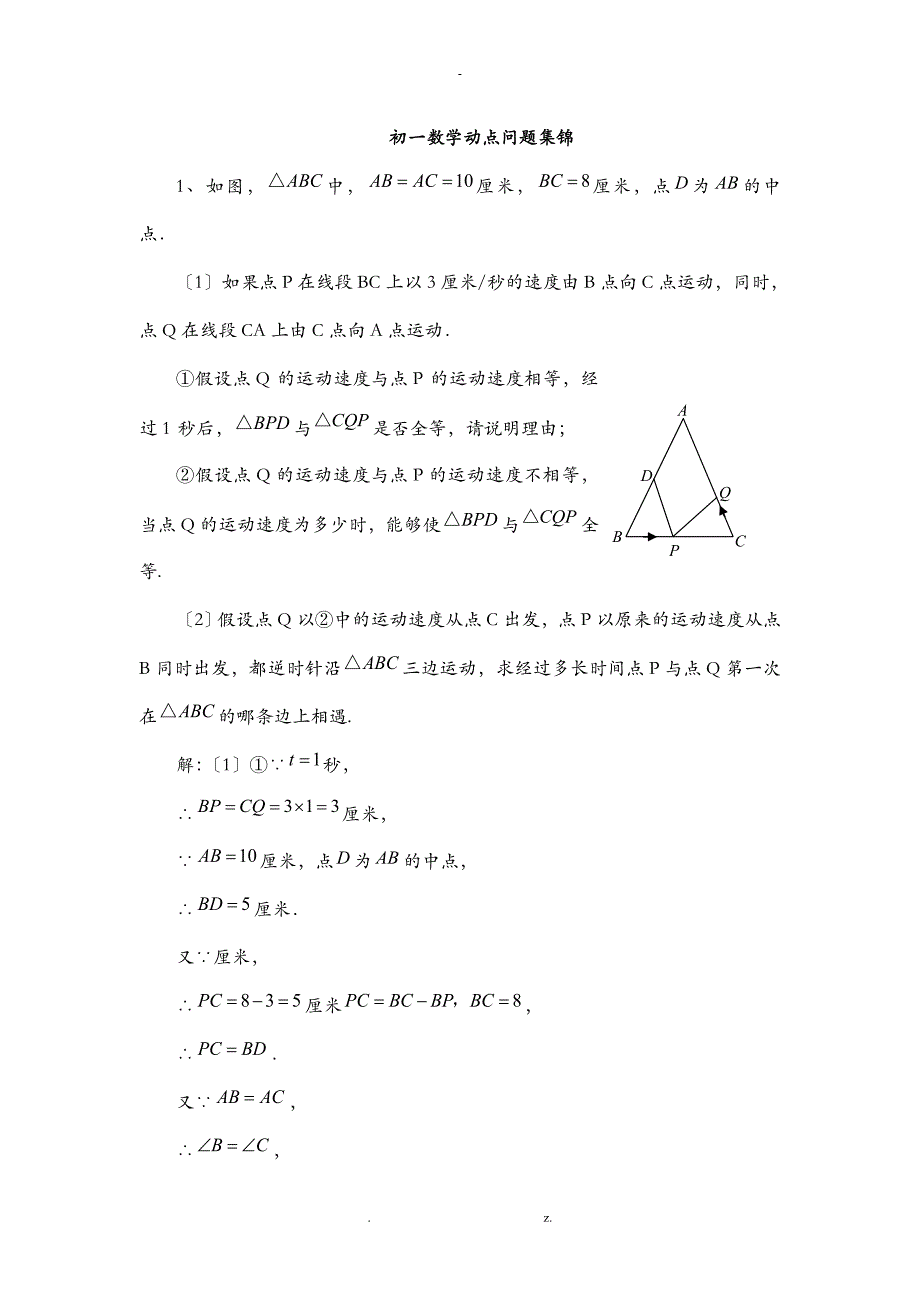 -
初一数学动点问题集锦
1、如图，△ABC中，AB=AC=10厘米，BC=8厘米，点D为AB的中
点．
〔1〕如果点P在线段BC上以3厘米/秒的速度由B点向C点运动，同时，
点Q在线段CA上由C点向A点运动．
①假设点Q的运动速度与点P的运动速度相等，经
过1秒后，△BPD与△CQP是否全等，请说明理由；
②假设点Q的运动速度与点P的运动速度不相等，
当点Q的运动速度为多少时，能够使△BPD与△CQP全
等.
A
D
Q
B
P
C
〔2〕假设点Q以②中的运动速度从点C出发，点P以原来的运动速度从点
B同时出发，都逆时针沿△ABC三边运动，求经过多长时间点P与点Q第一次
在△ABC的哪条边上相遇.
解：〔1〕①∵t=1秒，
∴BP=CQ=3×1=3厘米，
∵AB=10厘米，点D为AB的中点，
∴BD=5厘米．
又∵厘米，
∴PC=8−3=5厘米PC=BC−BP，BC=8，
∴PC=BD．
又∵AB=AC，
∴∠B=∠C，
. z.